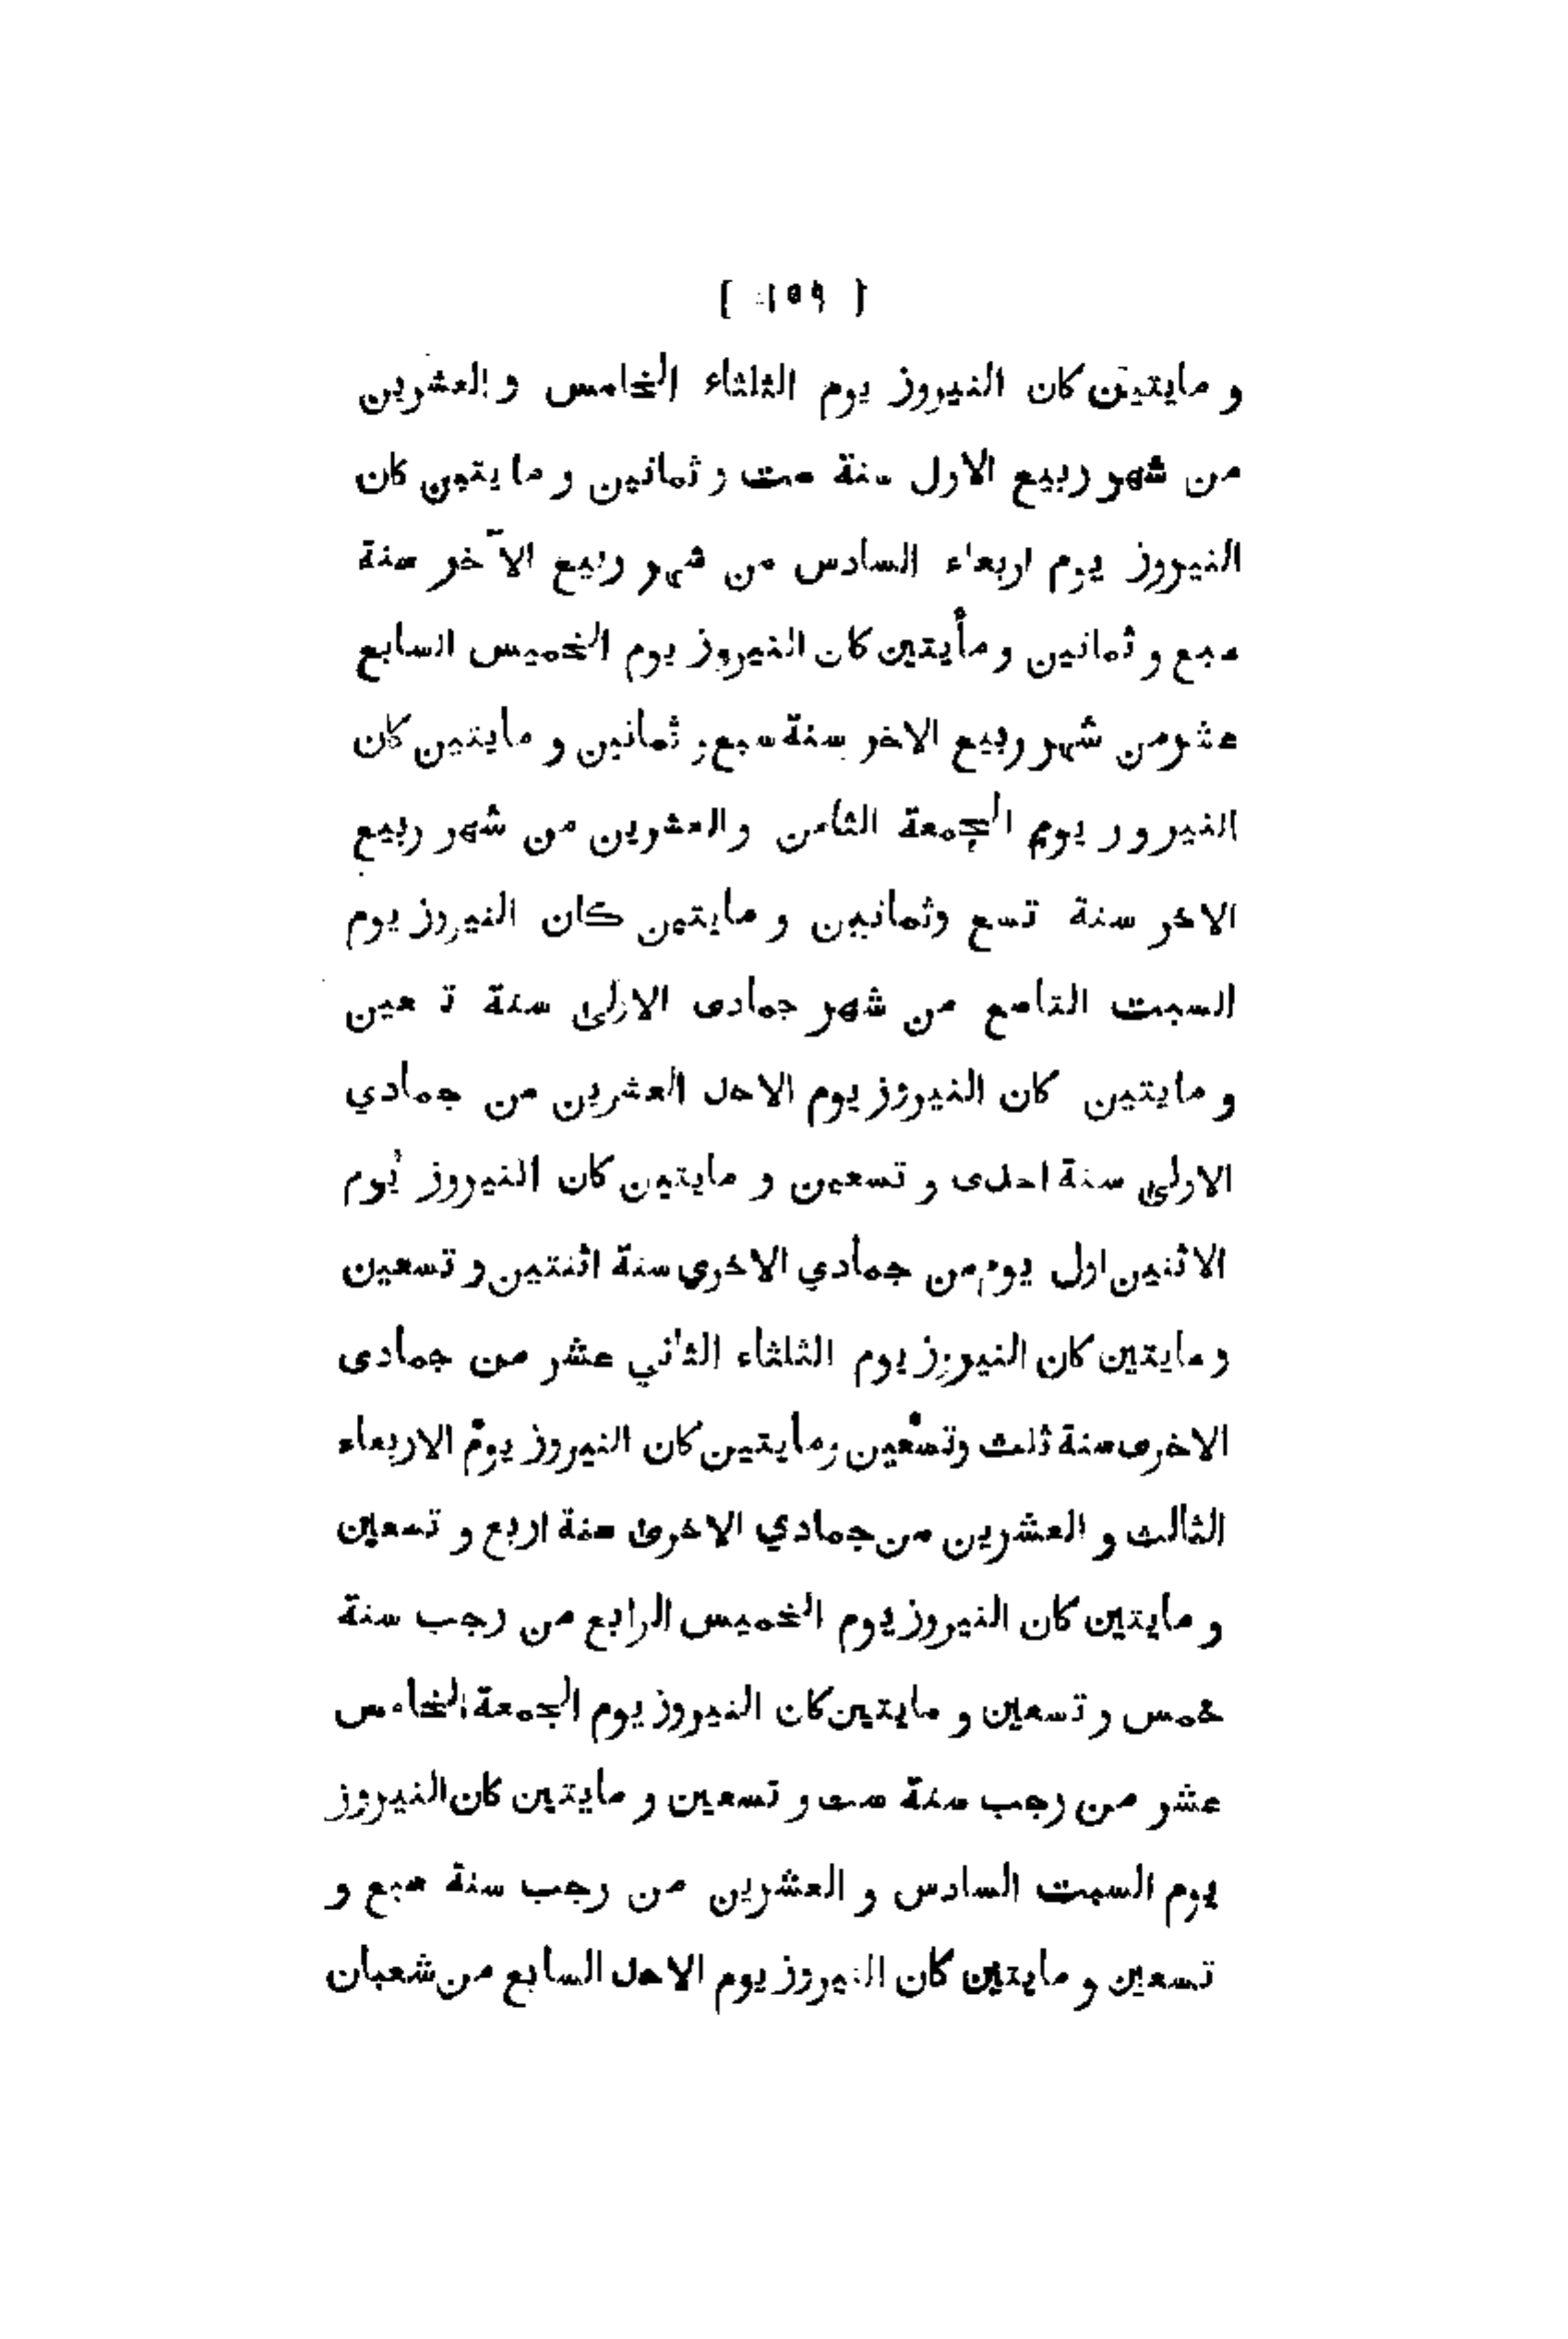 [ ١٥٩ ]
و مايتين كان النيروز يوم الثلثاء الخامس و العشرين
من شهر ربيع الاول سنة ست و ثمانين و مايتين كان
النيروز يوم اربعاء السادس من شهر ربيع الآخر سنة
سبع و ثمانين و مأيتين كان النيروز يوم الخميس السابع
عشر من شهر ربيع الاخر سنة سبع و ثمانين و مايتين كان
النيرور يوم الجمعة الثامن والعشرين من شهر ربيع
الاخر سنة تسع وثمانين و مايتين كان النيروز يوم
السبت التاسع من شهر جمادى الاولى سنة تسعين
و مايتين كان النيروز يوم الاحد العشرين من جمادي
الاولى سنة احدى و تسعين و مايتين كان النيروز يوم
الاثنين اول يوم من جمادي الاخرى سنة اثنتين و تسعين
و مايتين كان النيروز يوم الثلثاء الثاني عشر من جمادى
الاخرى سنة ثلث وتسعين ومايتين كان النيروز يوم الاربعاء
الثالث و العشرين من جمادي الاخرى سنة اربع و تسعين
و مايتين كان النيروز يوم الخميس الرابع من رجب سنة
خمس و تسعين و مايتين كان النيروز يوم الجمعة الخامس
عشر من رجب سنة ست و تسعين و مايتين كان النيروز
يوم السبت السادس و العشرين من رجب سنة سبع و
تسعين و مايتين كان النيروز يوم الاحد السابع من شعبان